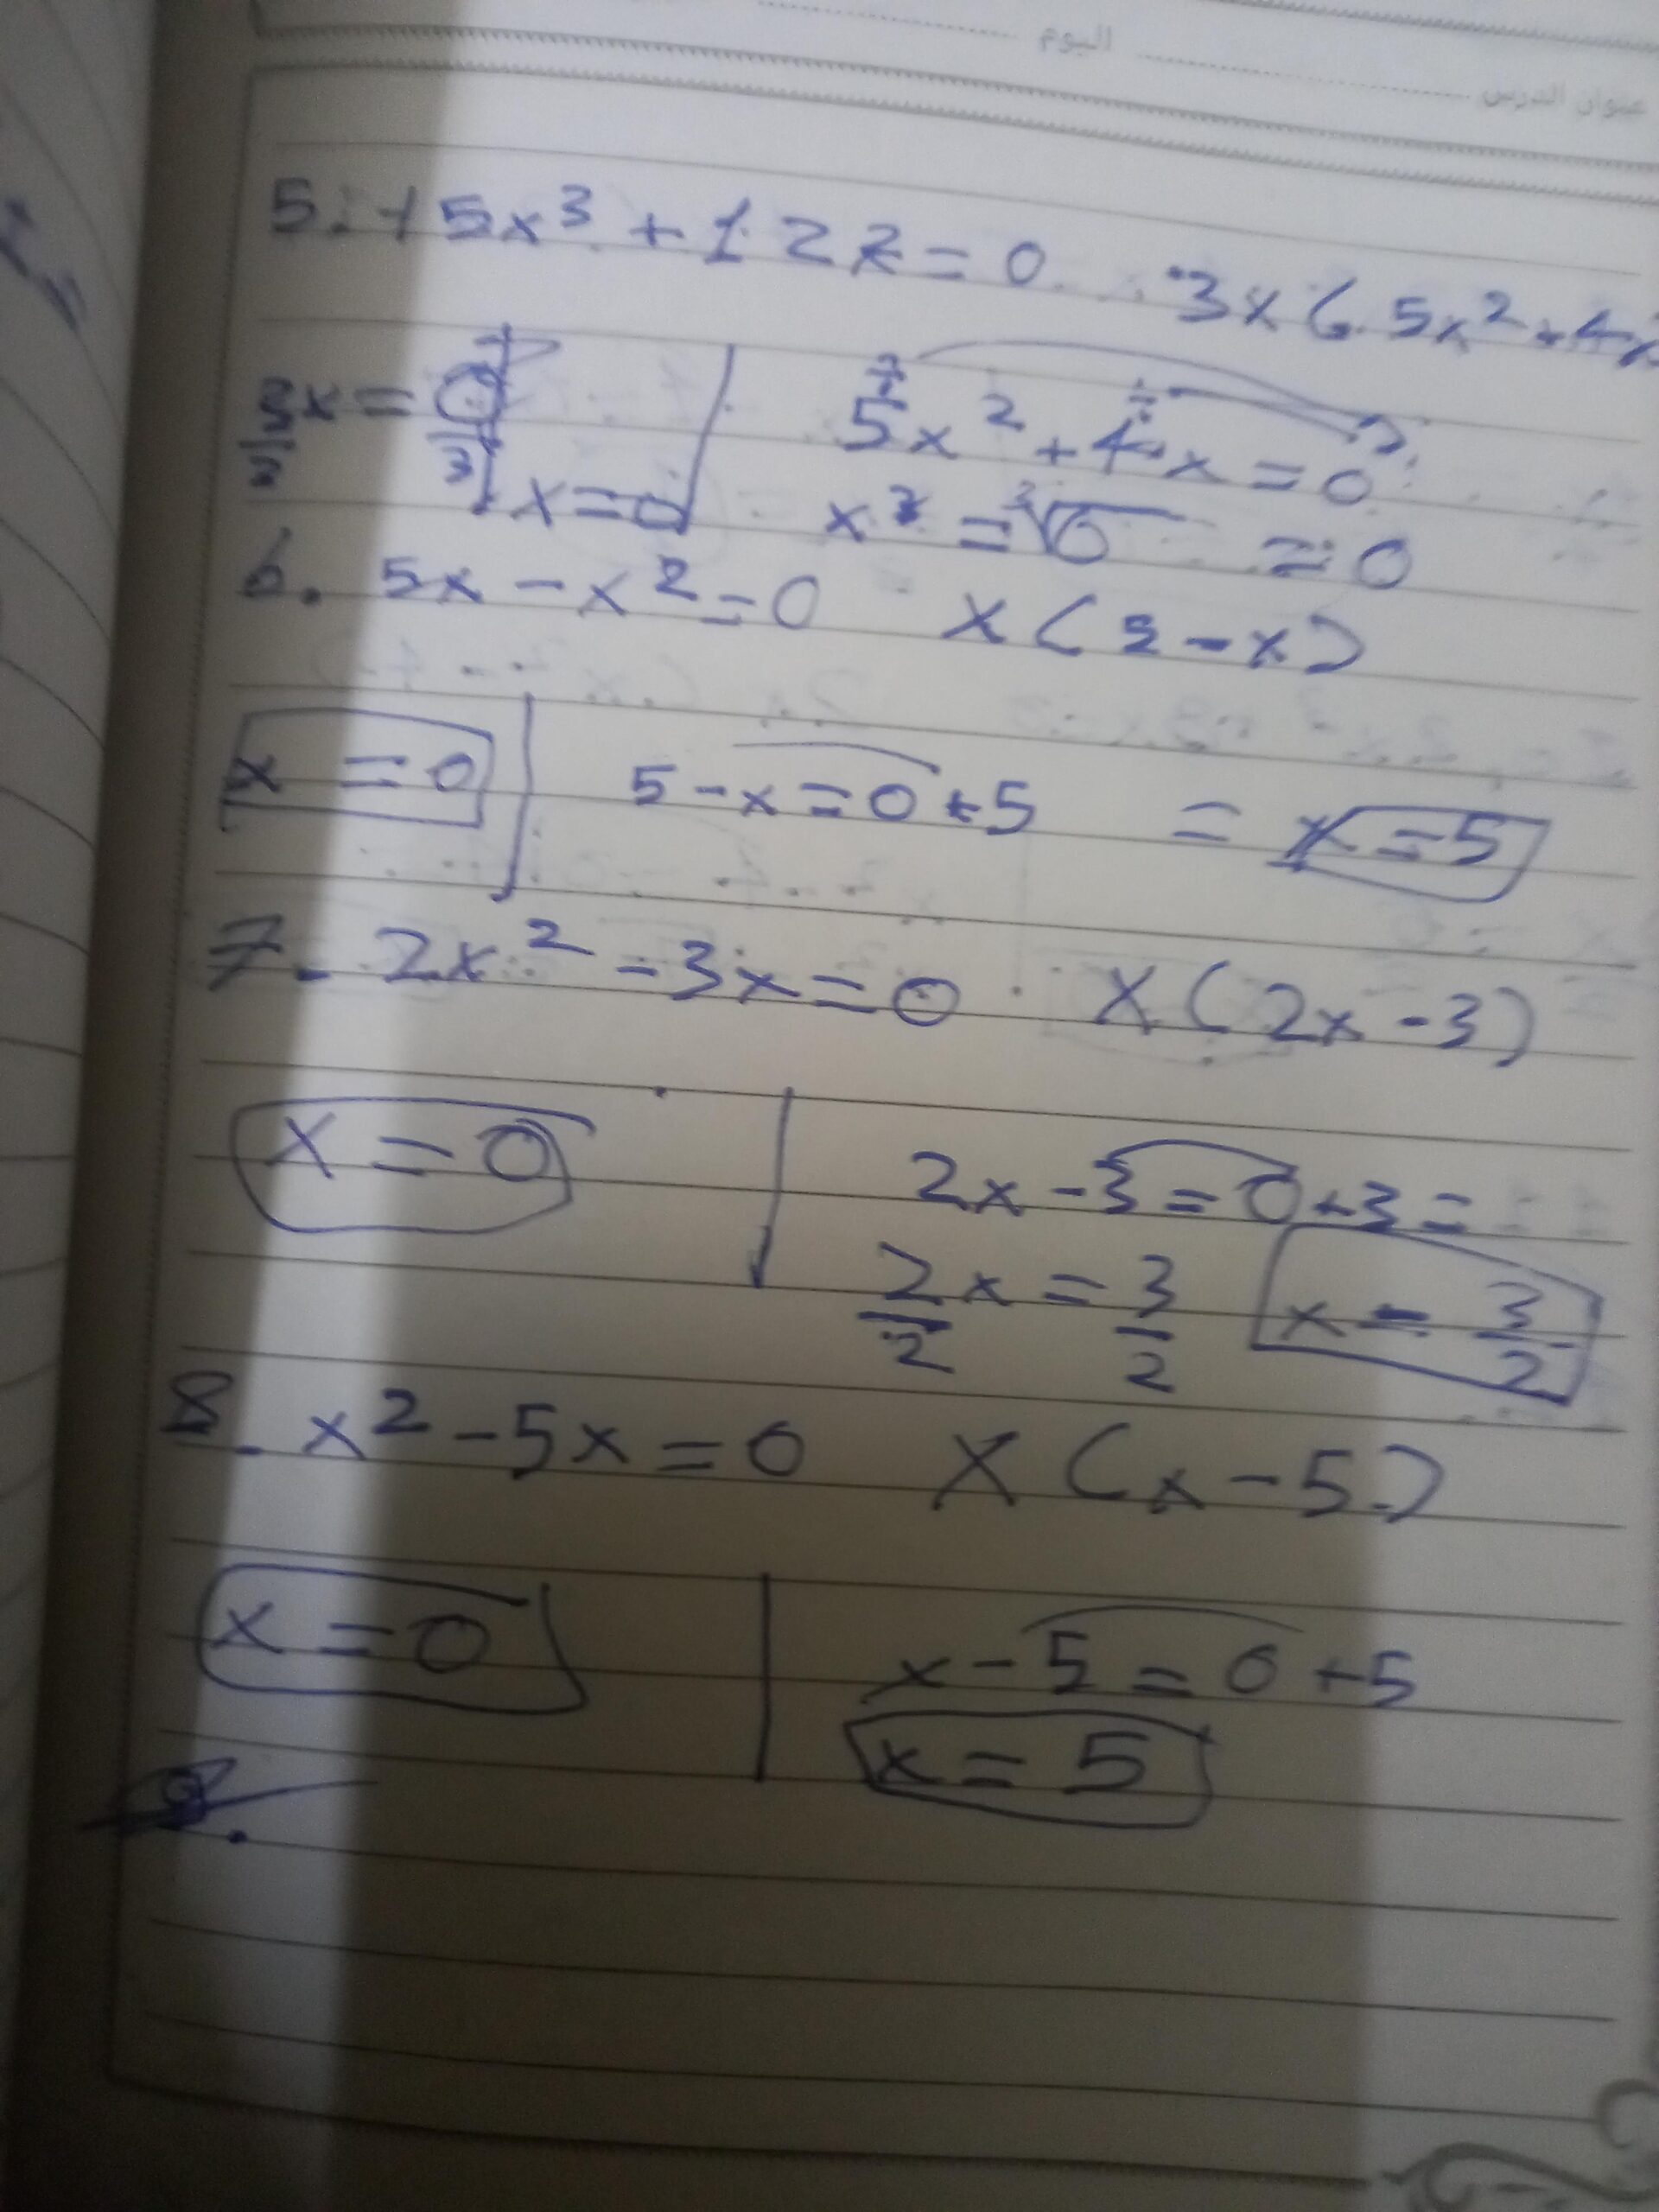 اليوم
عنوان الدرس
5. 15x³ + 12x = 0 3x(5x² + 4x
3/3 x = 0/3 x = 0
5x² + 4x = 0
= 0
6. 5x - x² = 0 x(5 - x)
x = 0 5 - x = 0 + 5 = x = 5
7. 2x² - 3x = 0 x(2x - 3)
x = 0 2x - 3 = 0 + 3 =
2/2 x = 3/2 x = 3/2
8. x² - 5x = 0 x(x - 5)
x = 0 x - 5 = 0 + 5
x = 5